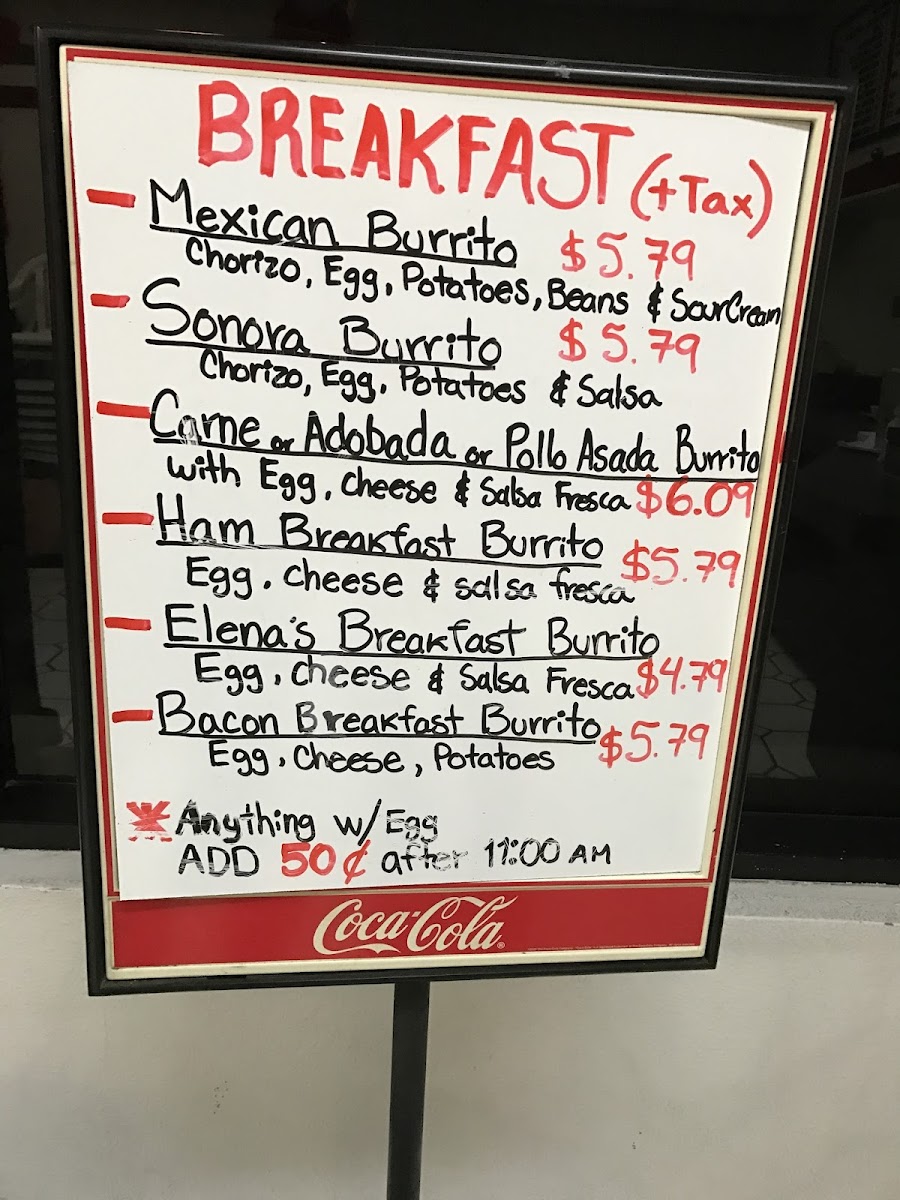 BREAKFAST (+Tax)
- Mexican Burrito $5.79
Chorizo, Egg, Potatoes, Beans & Sour Cream
- Sonora Burrito $5.79
Chorizo, Egg, Potatoes & Salsa
- Carne or Adobada or Pollo Asada Burrito
with Egg, Cheese & Salsa Fresca $6.09
- Ham Breakfast Burrito $5.79
Egg, Cheese & salsa fresca
- Elena's Breakfast Burrito
Egg, Cheese & Salsa Fresca $4.79
- Bacon Breakfast Burrito $5.79
Egg, Cheese, Potatoes
* Anything w/ Egg
ADD 50¢ after 11:00 AM
Coca-Cola®